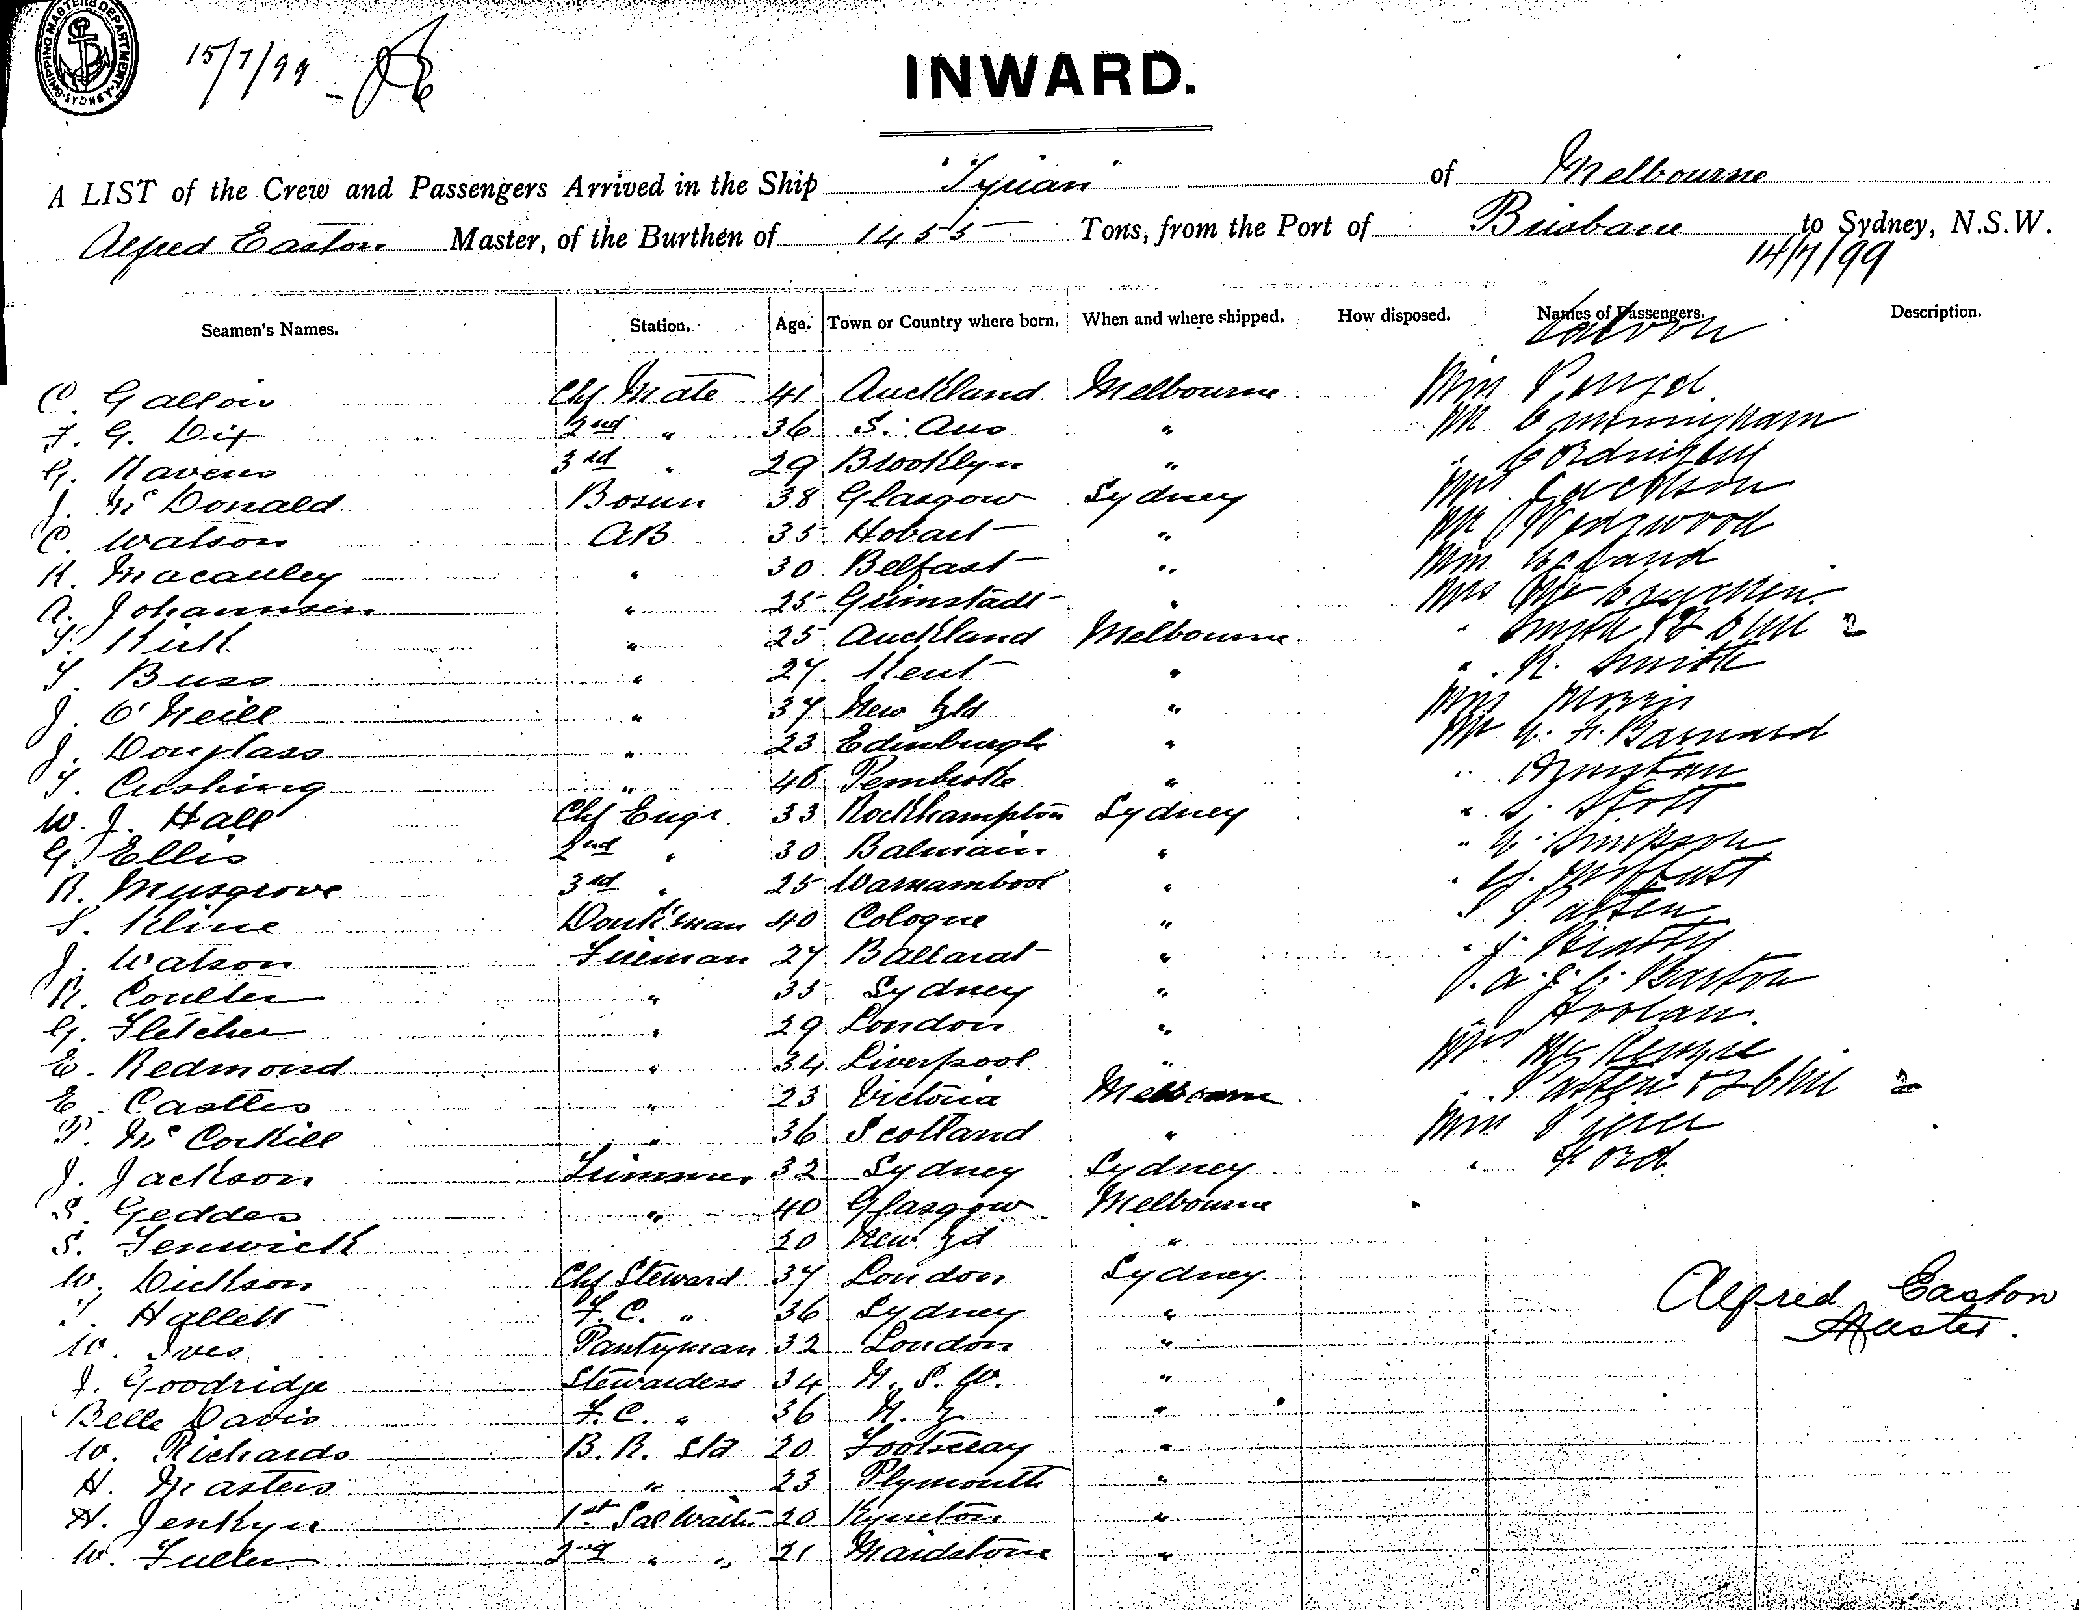 SHIPPING MASTERS DEPARTMENT SYDNEY
15/7/99
INWARD.
A LIST of the Crew and Passengers Arrived in the Ship "Tyrian" of Melbourne
Alfred Easton Master, of the Burthen of 1455 Tons, from the Port of Brisbane to Sydney, N.S.W.
14/7/99
Seamen's Names. Station. Age. Town or Country where born. When and where shipped. How disposed. Names of Passengers. Description.
Saloon
C. Gallow Chf Mate 41 Auckland Melbourne Miss
F. G. Dix 2nd " 36 S. Aus " Mr Cunningham
G. Ravens 3rd " 29 Brooklyn " "
J. McDonald Bosun 38 Glasgow Sydney Mrs Jackson
C. Watson AB 35 Hobart " Mr Wedgwood
R. Macauley " 30 Belfast " Miss
A. Johannsen " 25 Grimstadt " Mrs
T. Kirk " 25 Auckland Melbourne " Smith & 2 Chil 2
T. Buss " 27 Kent " " R. Smith
J. O'Neill " 37 New Zld " Miss Morris
J. Douglass " 23 Edinburgh " Mr G. F. Barnard
T. Cushing " 46 Pembroke " "
W. J. Hall Chf Engr 33 Rockhampton Sydney " S. Stott
G. Ellis 2nd " 30 Balmain " " G. Simpson
R. Musgrove 3rd " 25 Warnambool " "
S. Kline Donk'man 40 Cologne " " Patten
J. Watson Fireman 27 Ballarat " " J. Beatty
R. Coulter " 35 Sydney " " A. J. C. Barton
G. Fletcher " 29 London " " Hoolan
E. Redmond " 34 Liverpool " Mrs McKenzie
E. Castles " 23 Victoria Melbourne " Patten & 2 Chil 2
P. McCorkill " 36 Scotland " Miss
J. Jackson Trimmer 32 Sydney Sydney " Ford
S. Geddes " 40 Glasgow Melbourne
S. Fenwick 20 New Zd "
W. Dickson Chf Steward 37 London Sydney Alfred Easton
T. Hallett F.C. " 36 Sydney " Master.
W. Ives Pantryman 32 London "
J. Goodridge Stewardess 34 N. S. W. "
Belle Davis F.C. " 36 N. Z "
W. Richards B. R. Std 20 Footscray "
H. Masters " 23 Plymouth "
H. Jenkyn 1st Sal Waiter 20 Kyneton "
W. Fuller 2nd " " 21 Maidstone "